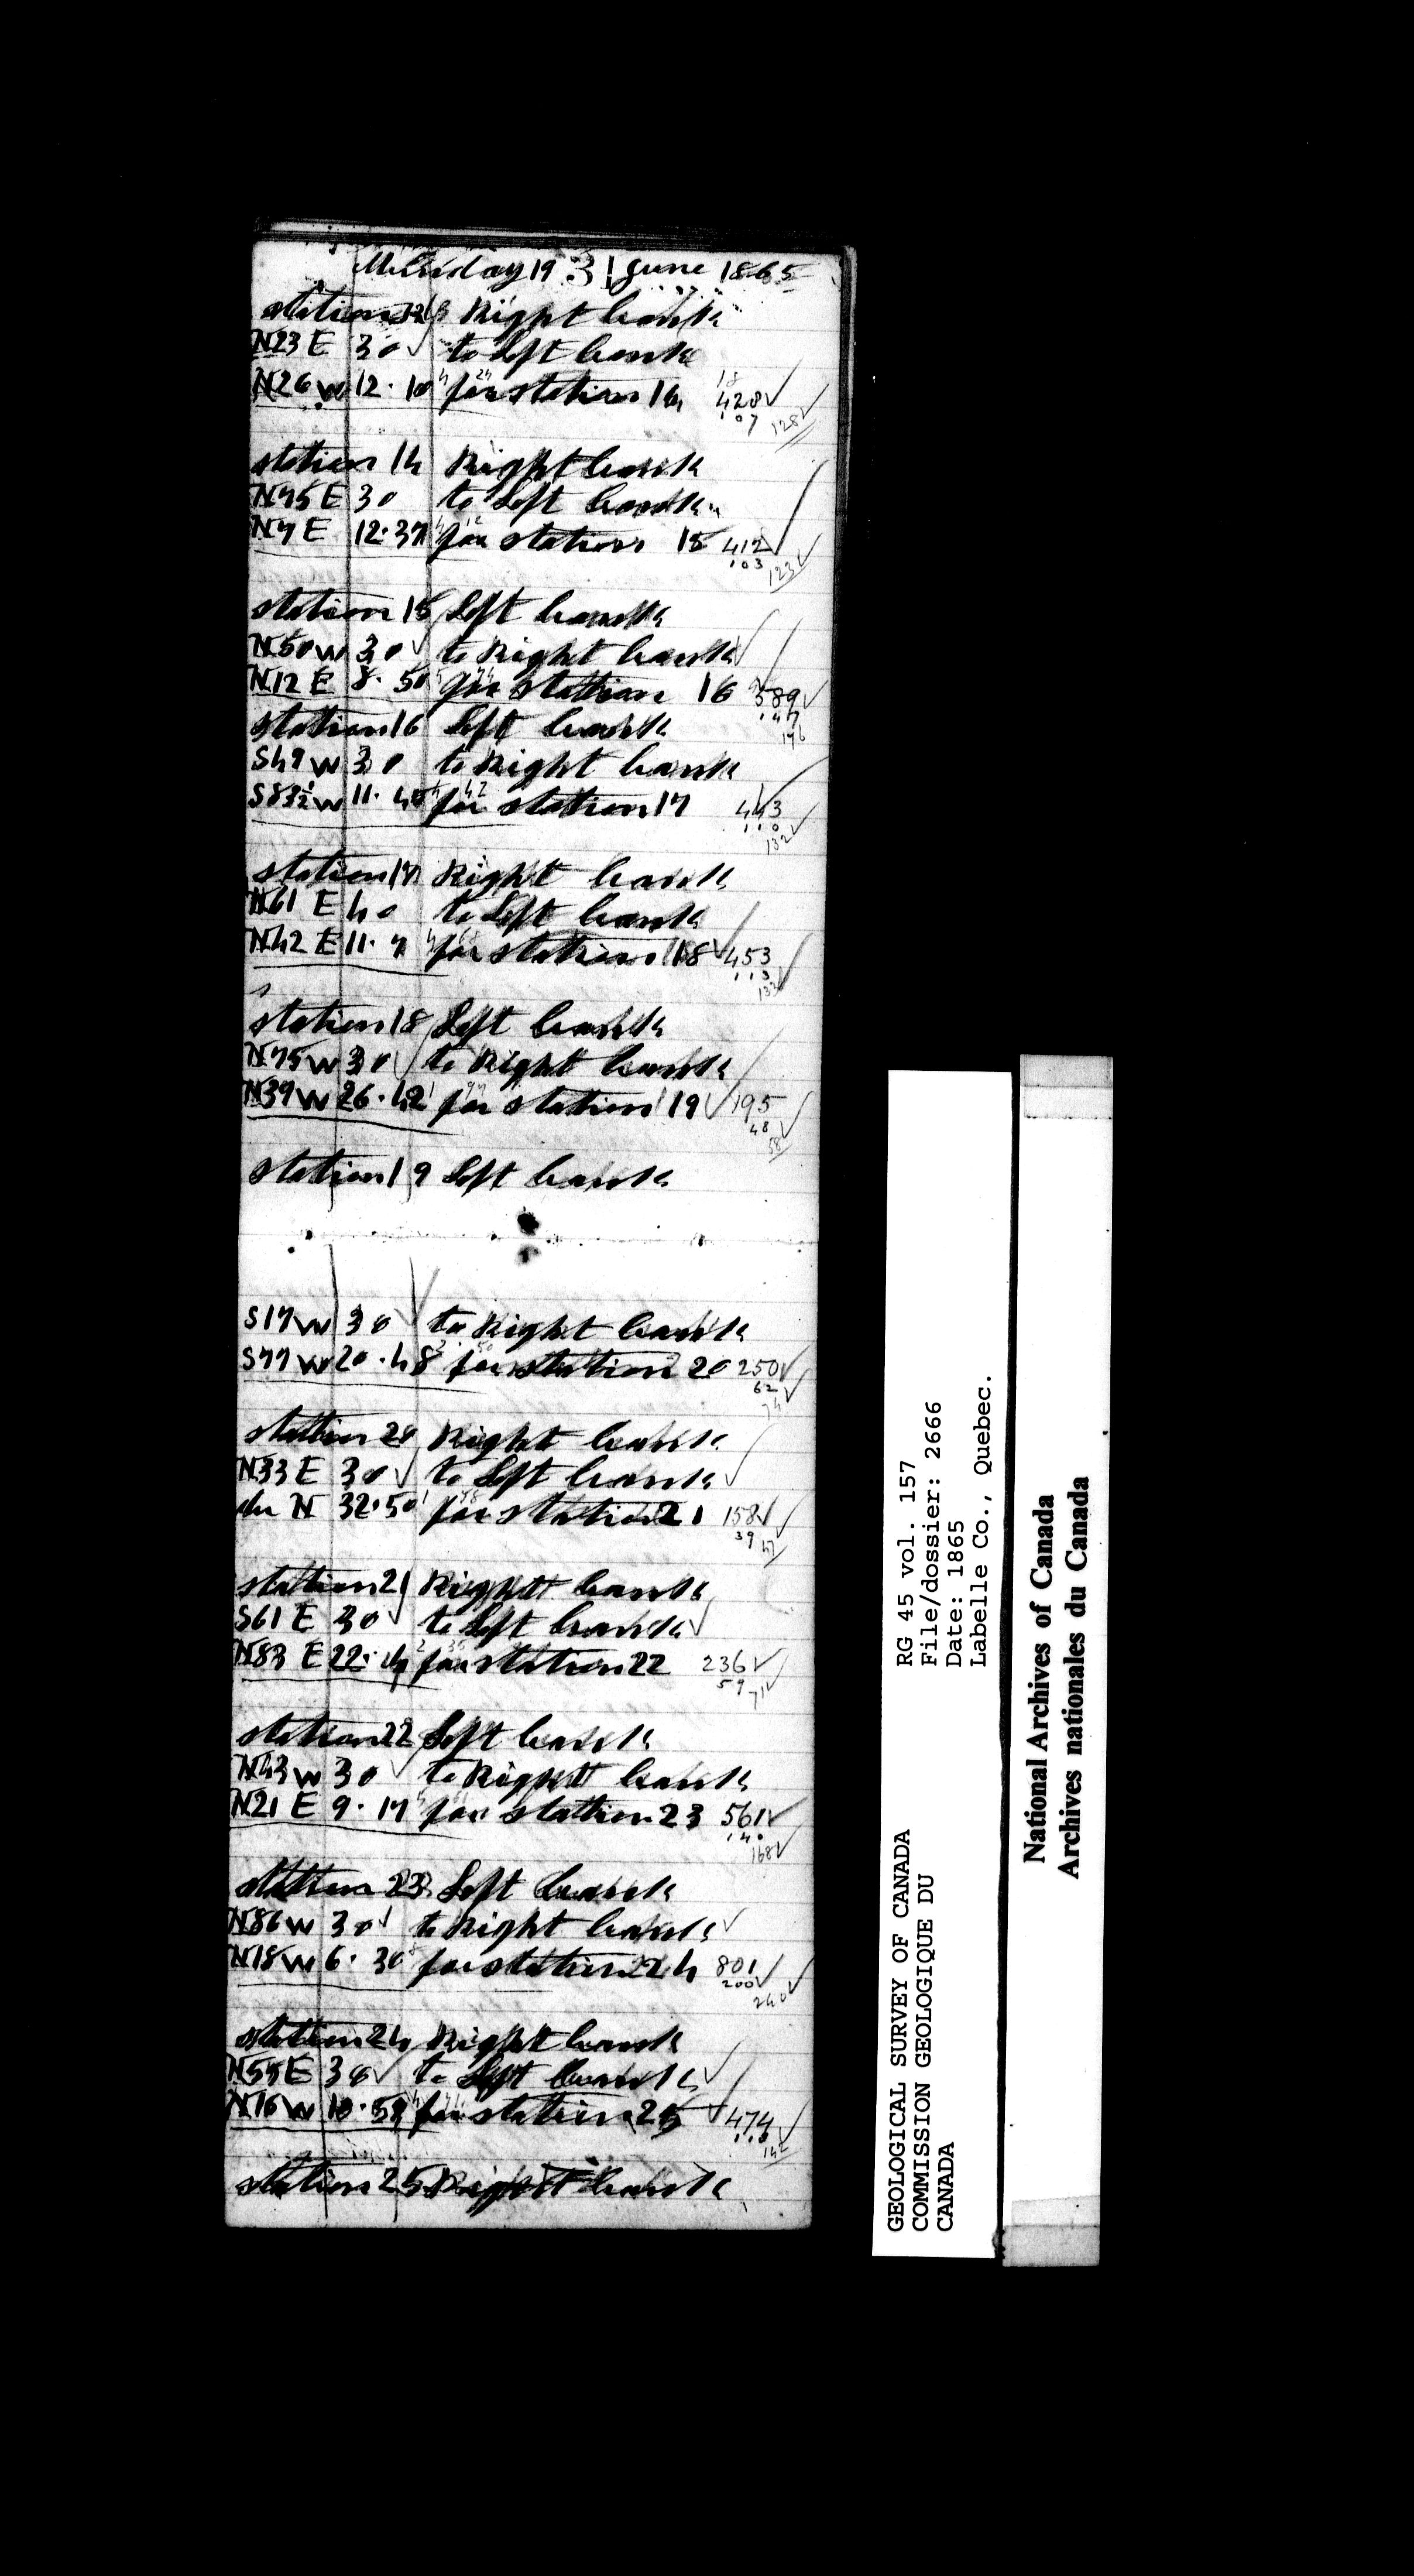 19 31 June 1865
station 13 Right bank
N23 E 30 to Left bank
N26 W 12·10 for station 14 428
107 128
station 14 Right bank
N75 E 30 to Left bank
N7 E 12·37 for station 15 412
103 123
station 15 Left bank
N50 W 30 to Right bank
N12 E 8·50 for station 16 589
147
176
station 16 Left bank
S49 W 30 to Right bank
S83½ W 11·40 for station 17 443
110
132
station 17 Right bank
N61 E 40 to Left bank
N42 E 11·7 for station 18 453
113
133
station 18 Left bank
N75 W 30 to Right bank
N39 W 26·42 for station 19 195
48
58
station 19 Left bank
S17 W 30 to Right bank
S77 W 20·48 for station 20 250
62
74
station 20 Right bank
N33 E 30 to Left bank
du N 32·50 for station 21 158
39 47
station 21 Right bank
S61 E 30 to Left bank
N83 E 22· for station 22 236
59 71
station 22 Left bank
N43 W 30 to Right bank
N21 E 9·17 for station 23 561
140
168
station 23 Left bank
N86 W 30 to Right bank
N18 W 6·30 for station 24 801
200
240
station 24 Right bank
N55 E 30 to Left bank
N16 W 10·59 for station 25 474
118
142
station 25 Right bank
GEOLOGICAL SURVEY OF CANADA
COMMISSION GEOLOGIQUE DU
CANADA
RG 45 vol. 157
File/dossier: 2666
Date: 1865
Labelle Co., Quebec.
National Archives of Canada
Archives nationales du Canada